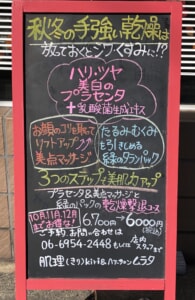 秋冬の手強い乾燥は
放っておくとシワくすみに!?
ハリ・ツヤ
美白の
プラセンタ
+乳酸菌生成エキス
お顔のコリを取って
リフトアップ
美点マッサージ
たるみ・むくみ
を引きしめる
緑のデンパック
3つのステップで美肌力アップ
プラセンタ&美点マッサージと
緑のパックの乾燥撃退コース
10月11月12月
までお得な!
6,700円→6000円
(税込)
ご予約・お問い合せは
06-6954-2448もしくは
店内
スタッフまで
肌理(きり)kirie ハナテン ムラタ